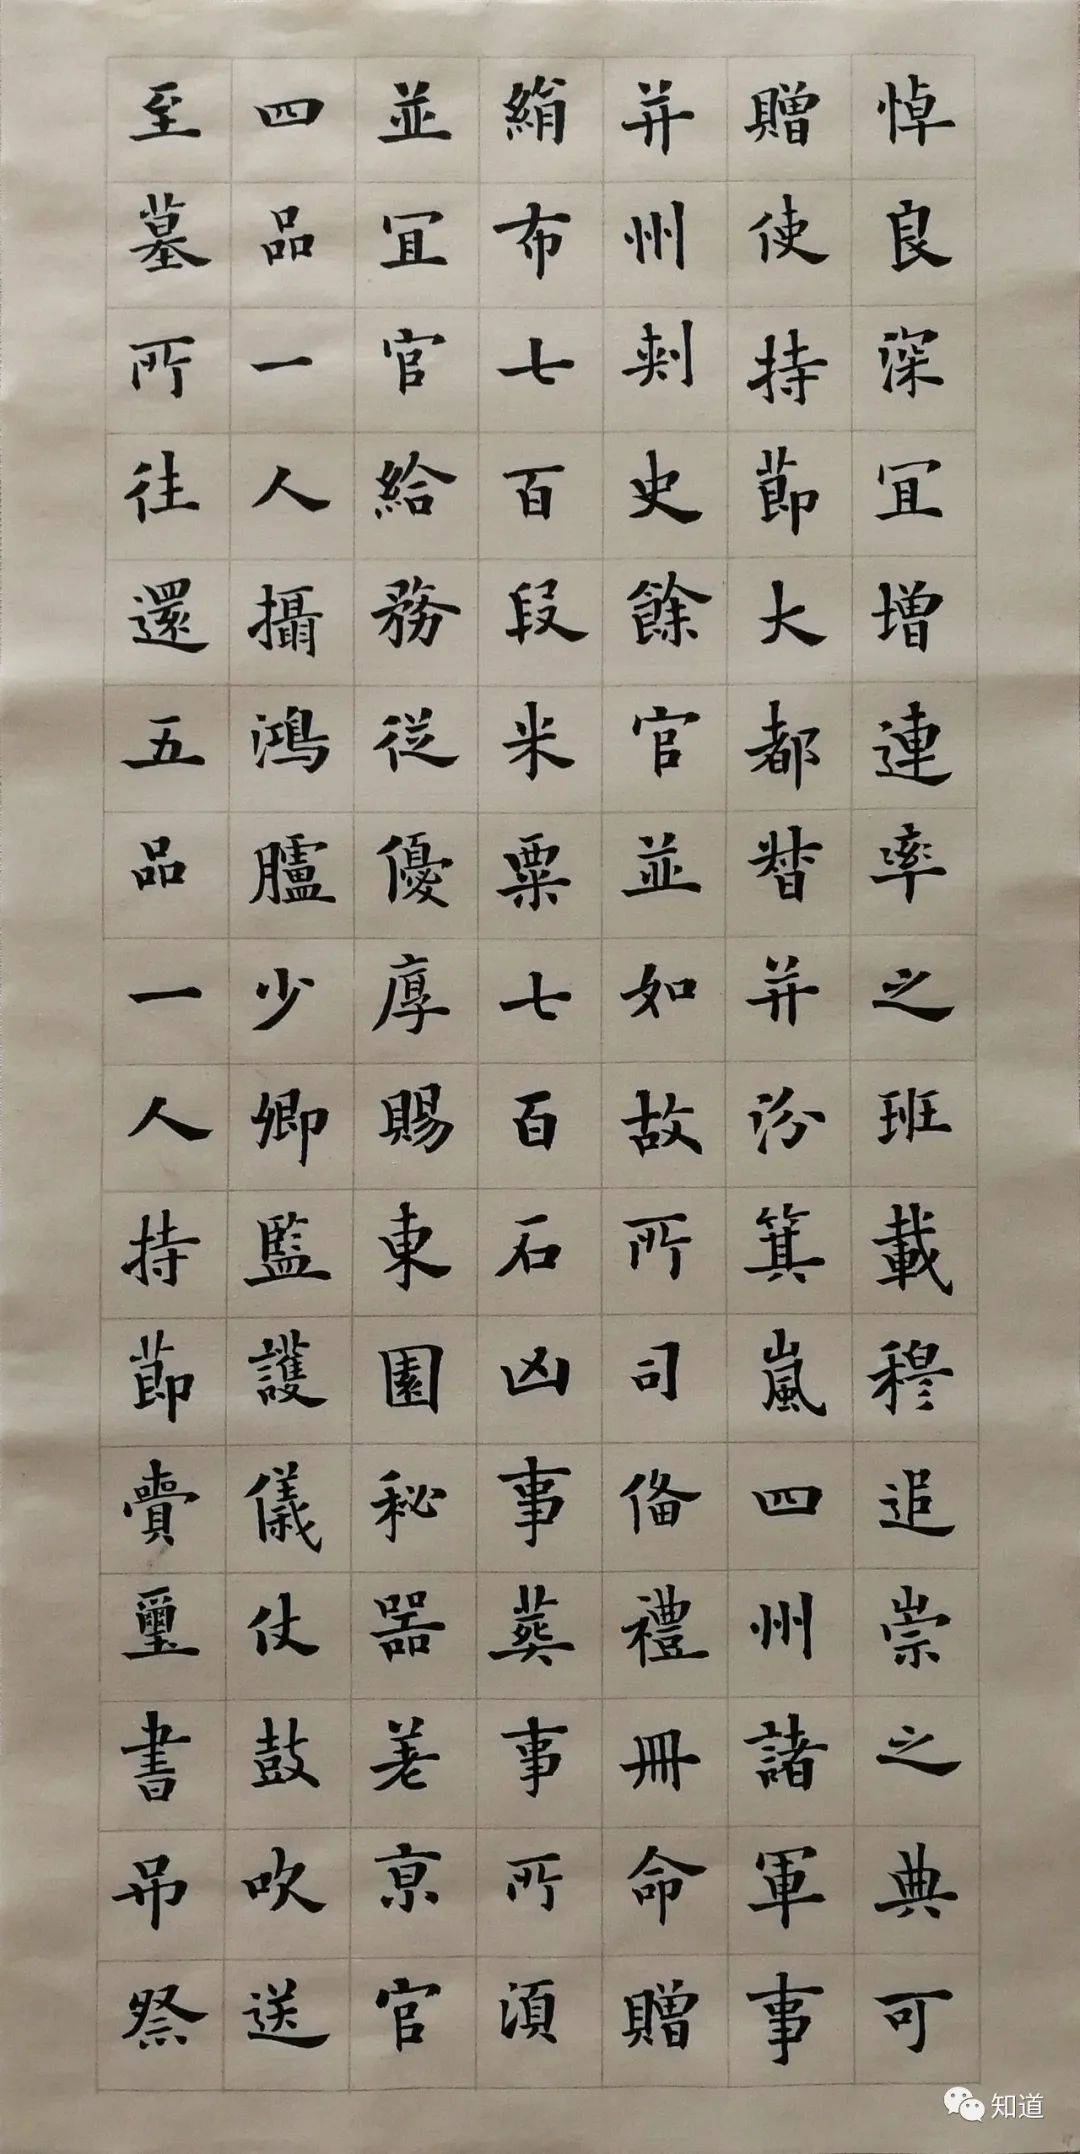 悼良深宜增連率之班載穆追崇之典可
贈使持節大都督并汾箕嵐四州諸軍事
并州刺史餘官並如故所司俻禮冊命贈
絹布七百段米粟七百石凶事葬事所湏
並宜官給務從優厚賜東園秘器差京官
四品一人攝鴻臚少卿監護儀仗鼓吹送
至墓所往還五品一人持節賷璽書弔祭
知道